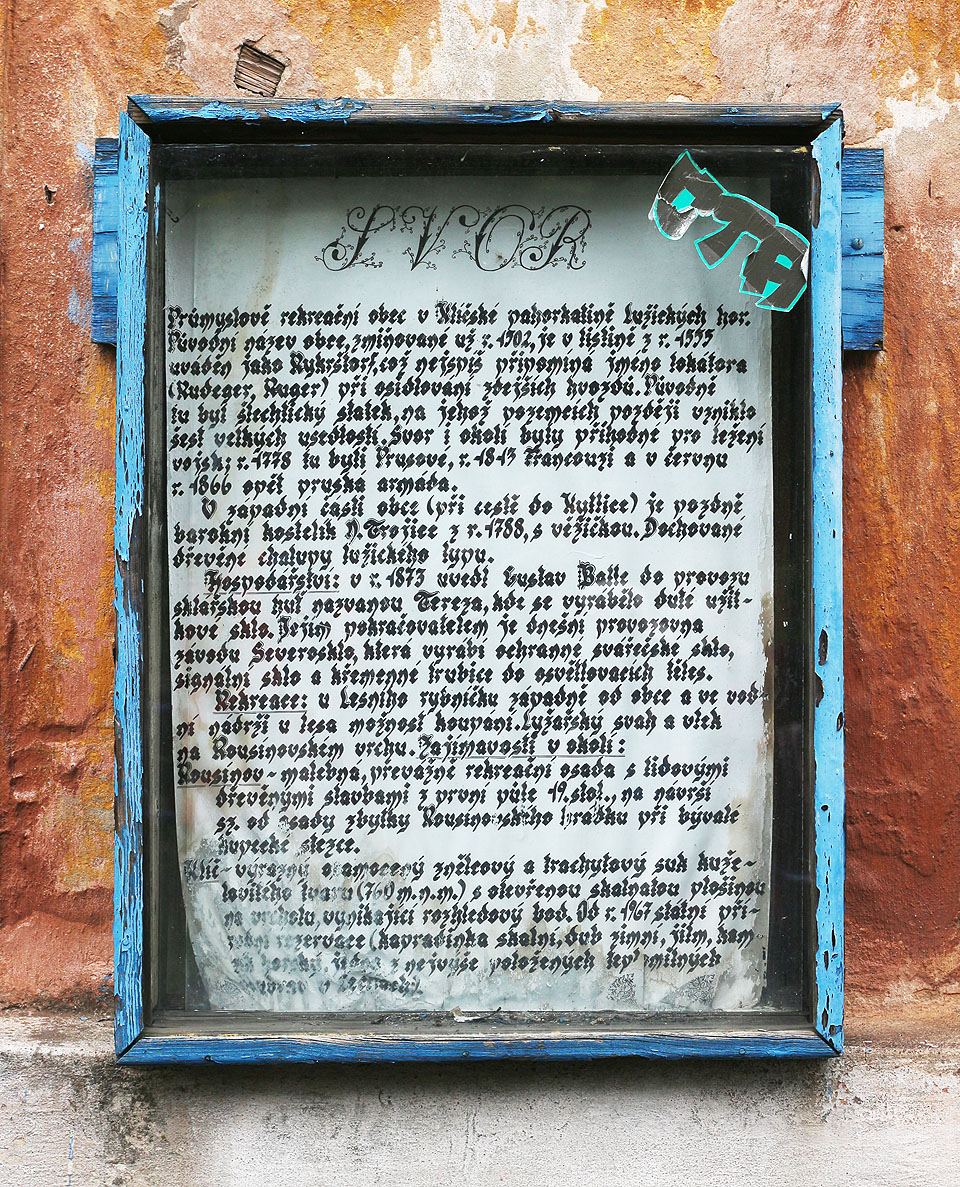 SVOR
OTA
Průmyslově rekreační obec v Kličské pahorkatině Lužických hor.
Původní název obce, zmiňované už r. 1502, je v listině z r. 1555
uváděn jako Rykrštorf, což nejspíš připomíná jméno lokátora
(Rudeger, Ruger) při osídlování zdejších hvozdů. Původně
tu byl šlechtický statek, na jehož pozemcích později vzniklo
šest velkých usedlostí. Svor i okolí byly příhodné pro ležení
vojsk; r. 1778 tu byli Prusové, r. 1813 Francouzi a v červnu
r. 1866 opět pruská armáda.
V západní části obce (při cestě do Kytlice) je pozdně
barokní kostelík N. Trojice z r. 1788, s věžičkou. Dochované
dřevěné chalupy lužického typu.
Hospodářství: v r. 1873 uvedl Gustav Palle do provozu
sklářskou huť nazvanou Tereza, kde se vyrábělo duté užit-
kové sklo. Jejím pokračovatelem je dnešní provozovna
závodu Severosklo, která vyrábí ochranné svářečské sklo,
signální sklo a křemenné trubice do osvětlovacích těles.
Rekreace: u Lesního rybníčku západně od obce a ve vod-
ní nádrži u lesa možnost koupání. Lyžařský svah a vlek
na Rousínovském vrchu. Zajímavosti v okolí:
Rousínov - malebná, převážně rekreační osada s lidovými
dřevěnými stavbami z první půle 19. stol., na návrší
sz. od osady zbytky Rousínovského hrádku při bývalé
kupecké stezce.
Klíč - výrazný osamocený znělcový a trachytový suk kuže-
lovitého tvaru (760 m.n.m.) s otevřenou skalnatou plošinou
na vrcholu, vynikající rozhledový bod. Od r. 1967 státní pří-
rodní rezervace (kapradinka skalní, dub zimní, jilm, kam-
zík horský, jedna z nejvýše položených teplomilných
doubrav v Čechách).